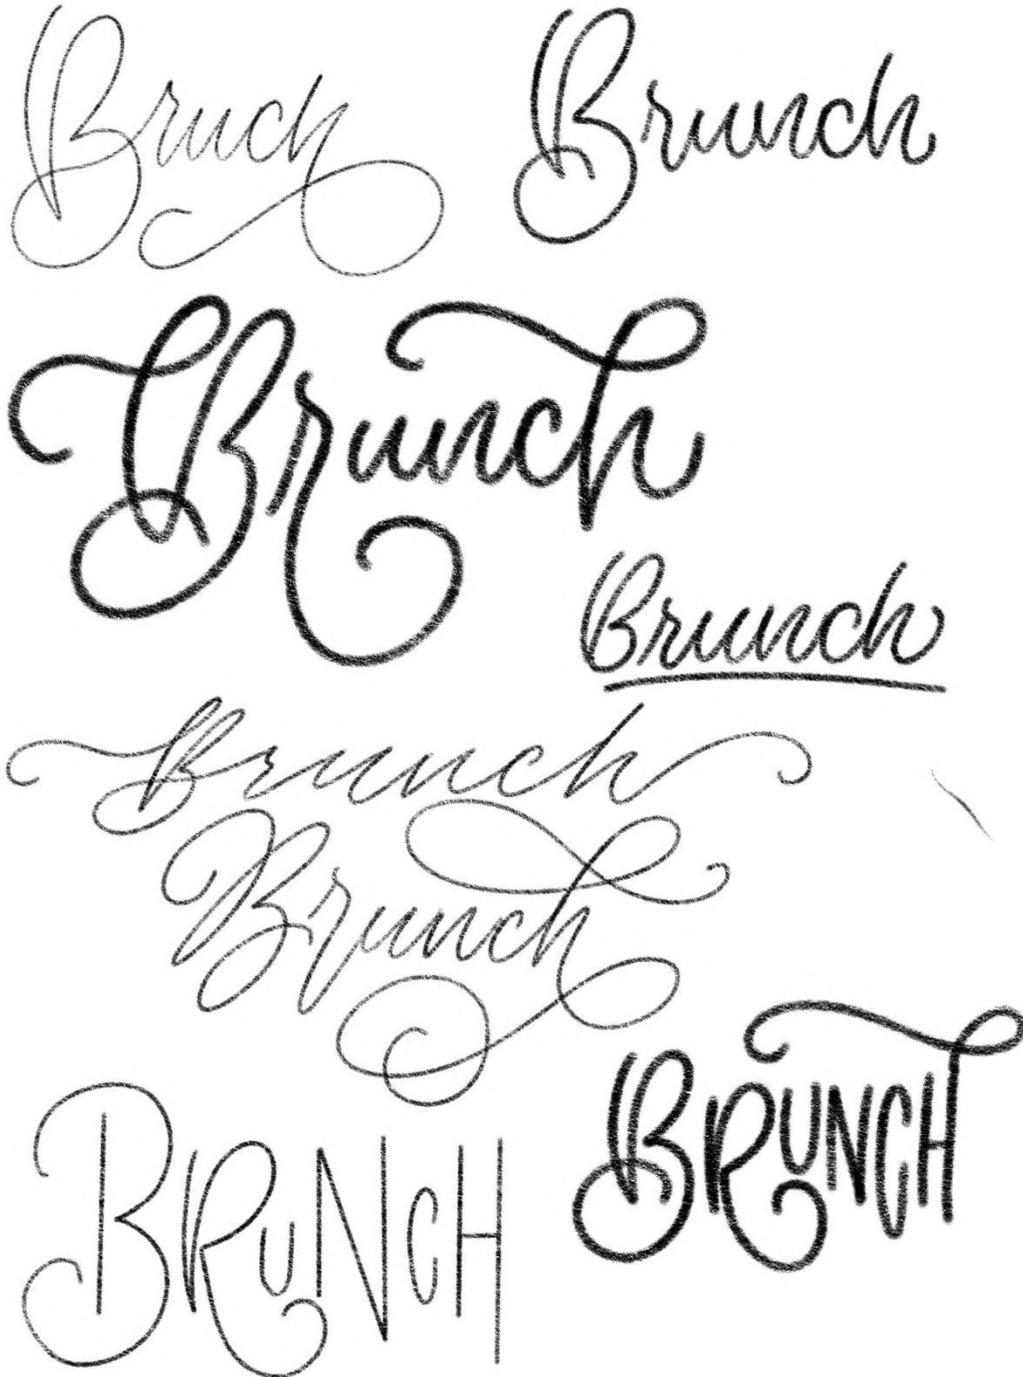 Bruch
Brunch
Brunch
Brunch
Brunch
Brunch
BRUNCH
BRUNCH